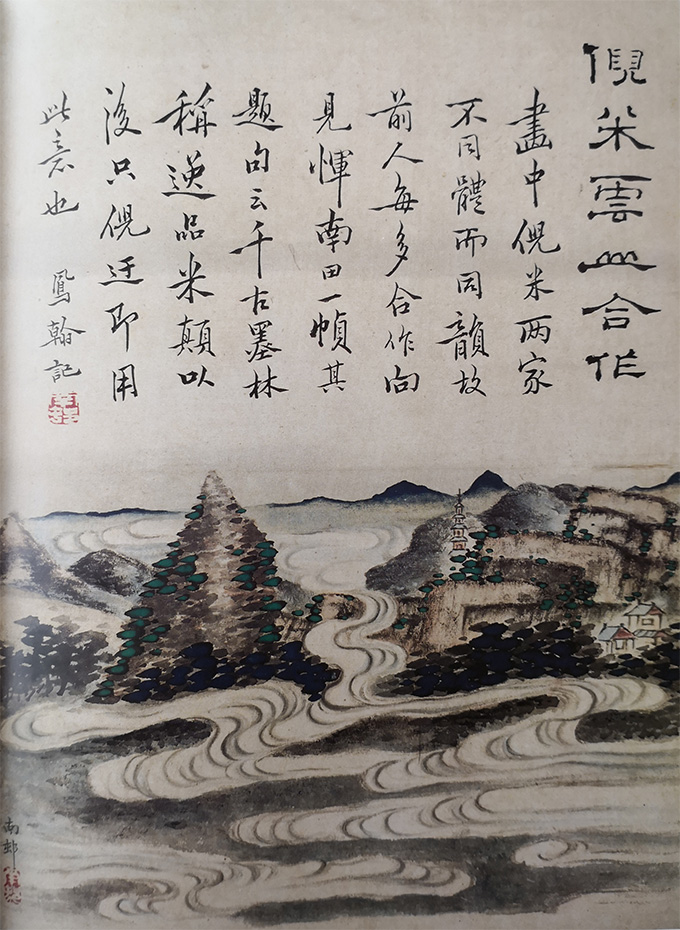 倪米雲山合作
畫中倪米两家
不同體而同韻故
前人每多合作向
見惲南田一幀其
題句云千古墨林
稱逸品米顛以
後只倪迂即用
此意也 鳳翰記
南邨